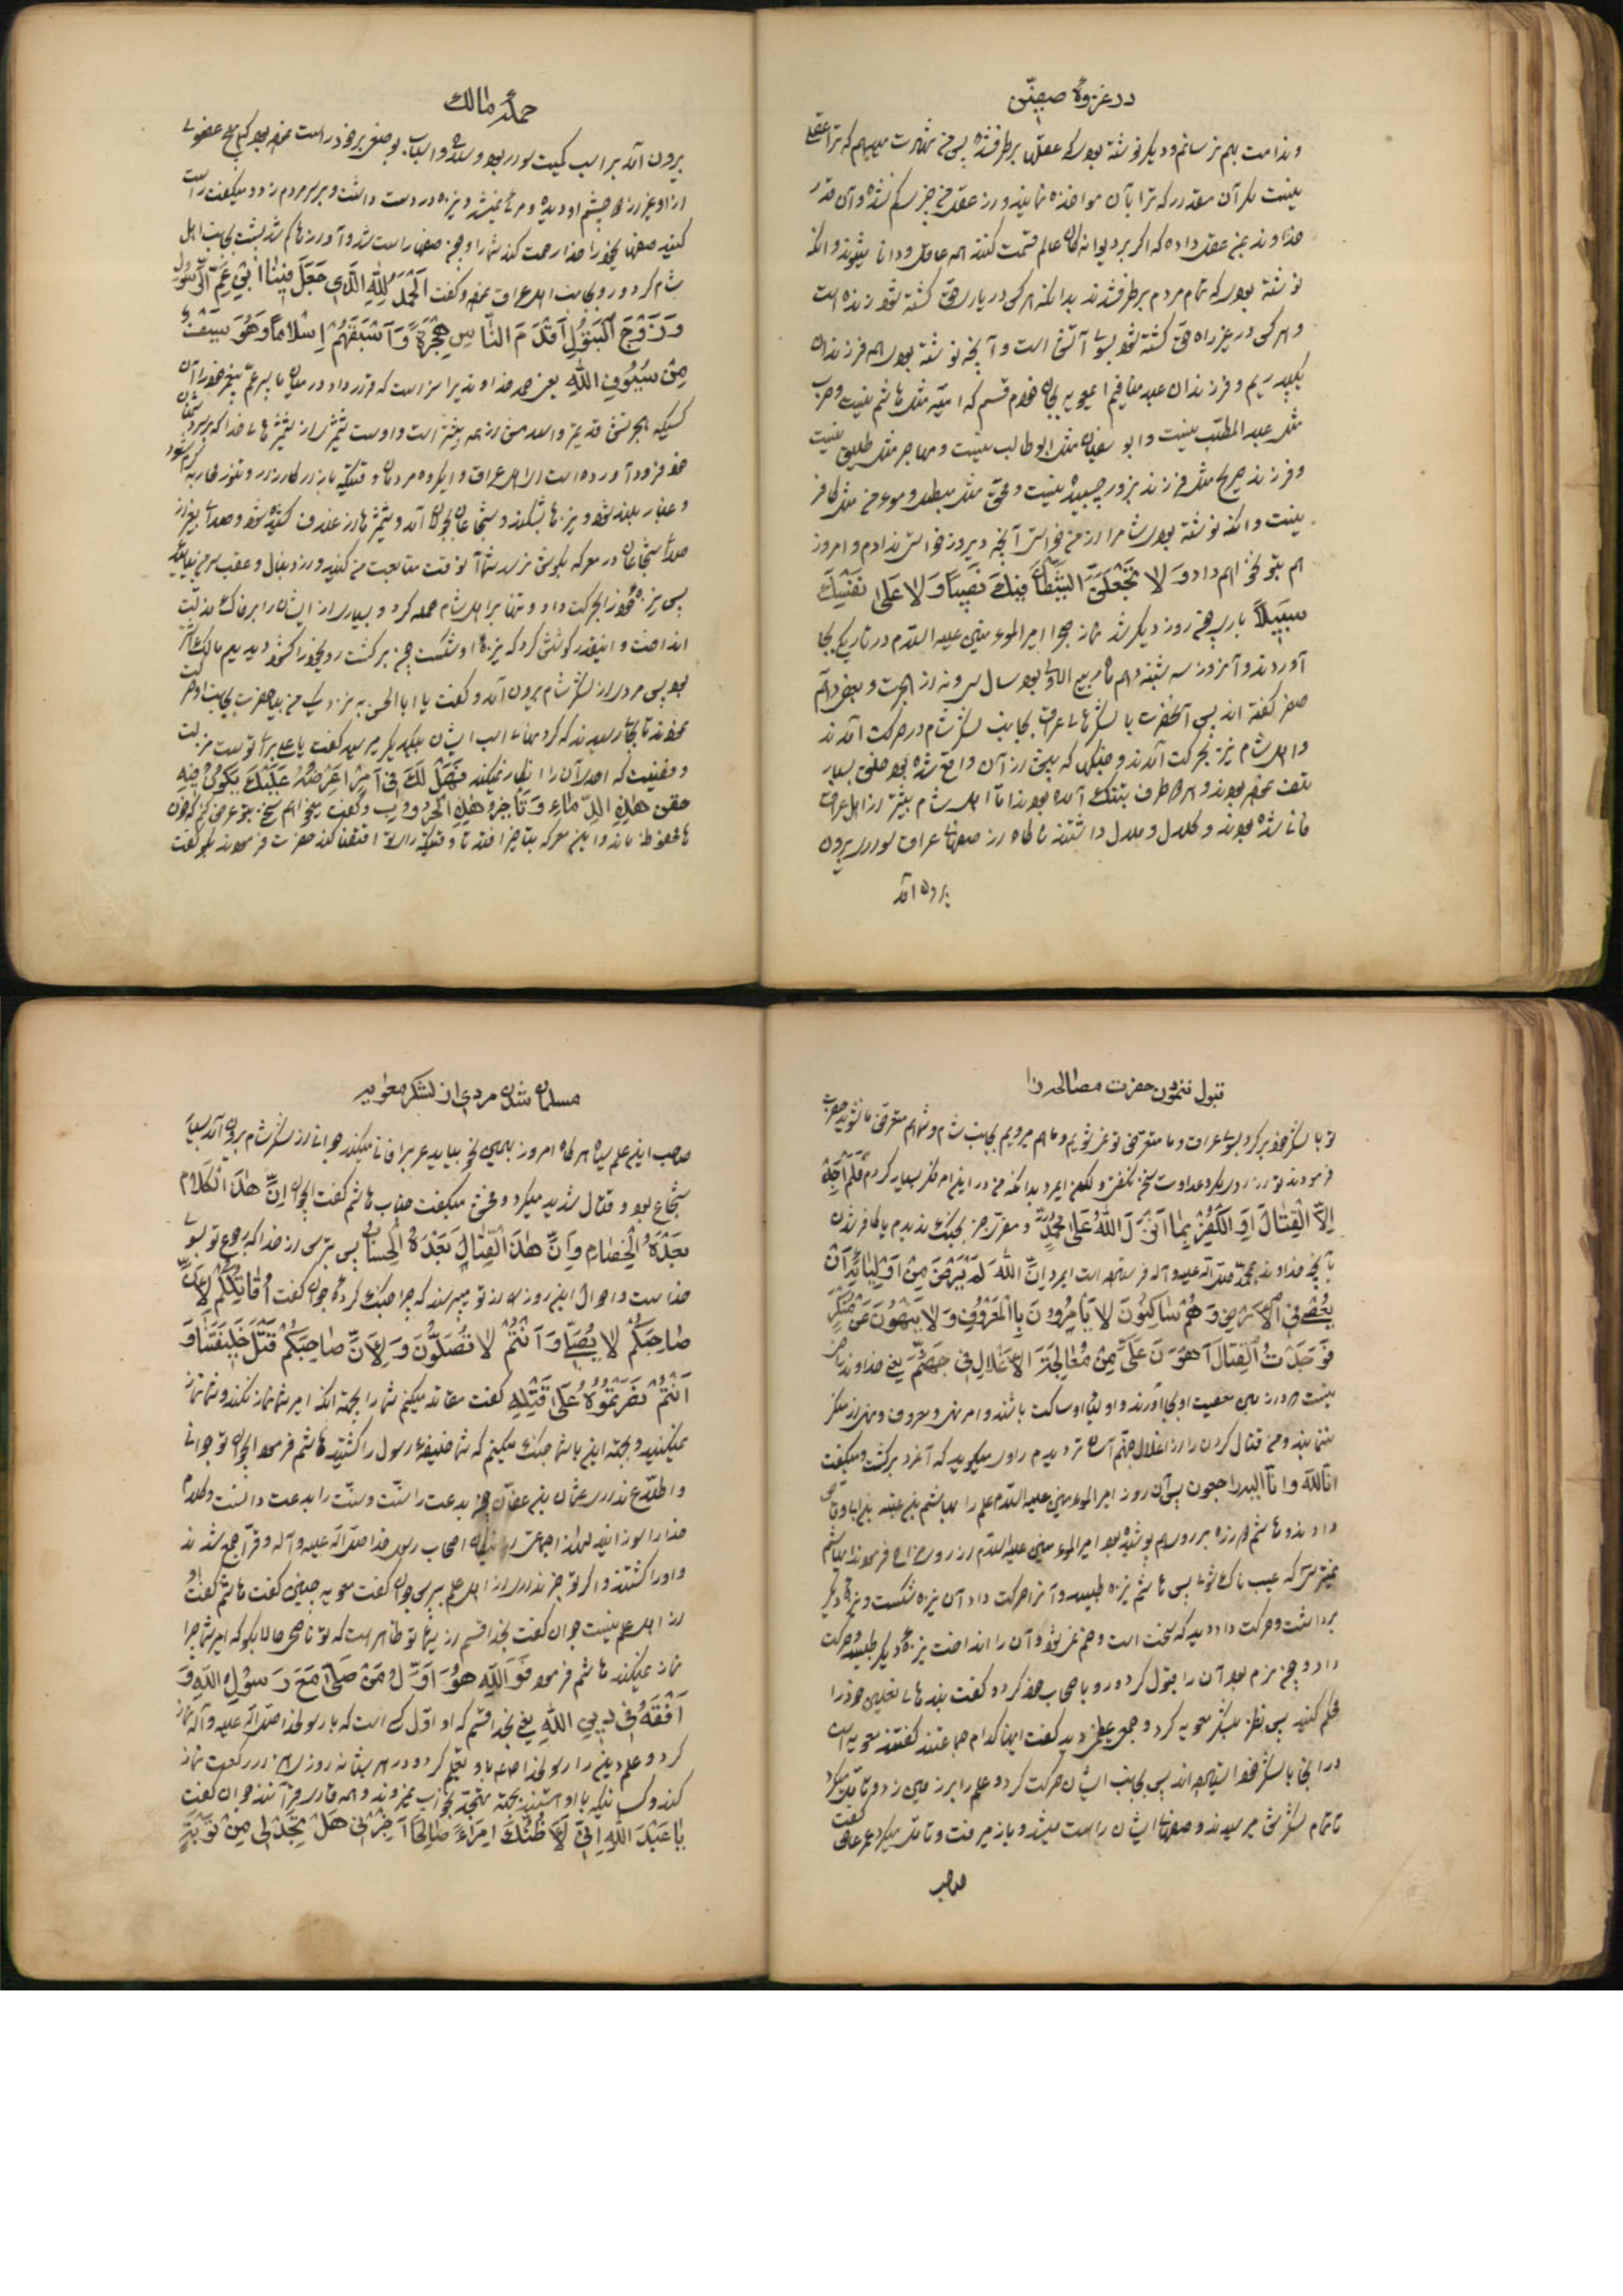 در غزوهٔ صفین
و ندامت بهم نرسانم و دیگر نوشته بودی که عقل برطرف شده پس من شهادت میدهم که ترا عقلی
نیست مگر آن مقدر که ترا بآن مواخذه نمایند و از عقل من چیزی کم نشده و آن قدر
خداوند بمن عقل داده که اگر بر دیوانه‌کان عالم قسمت کنند همه عاقل و دانا میشوند و آنکه
نوشته بودی که تمام مردم برطرف شدند بدانکه هر کس در یاری حق کشته شود زنده است
و هر کس در غیر راه حق کشته شود بسوی آتش است و آنچه نوشته بودی همه فرزندان
یکپدریم و فرزندان عبد منافیم ای معویه بجان خودم قسم که امیه مثل هاشم نیست و حرب
مثل عبد المطلب نیست و ابو سفیان مثل ابوطالب نیست و مهاجر مثل طلیق نیست
و فرزند صریح مثل فرزند بزور چسبیده نیست و محق مثل مبطل و مومن مثل کافر
نیست و آنکه نوشته بودی شام را از من خواستی آنچه دیروز خواستی ندادم و امروز
هم بتو نخواهم داد وَلا تَجْعَلَنَّ لِلشَّيْطانِ فِيكَ نَصِيباً وَلا عَلى نَفْسِكَ
سَبِيلاً باری چون روز دیگر شد نماز صبح را امیر المومنین علیه السلام در تاریکی بجا
آوردند و آنروز سه شنبه دهم ماه ربیع الاول بود سال سی و نه از هجرت و بعضی دهم
صفر گفته اند پس آنحضرت با لشکرهای عراق بجانب لشکر شام در حرکت آمدند
و اهل شام نیز بحرکت آمدند و جنگی که پیش از آن واقع شده بود خلق بسیار
تلف شده بودند و هر دو طرف بتنک آمده بودند اما اهل شام بیشتر از اهل عراق
مانده شده بودند و کلال و ملال داشتند ناگاه از صفهای عراق سواری بیرون
بیرون آمد
حملهٔ مالک
بیرون آمد بر اسب کمیت سوار بود و سلاح و اسباب بوصفی بر خود راست نموده بود که هیچ عضوی
از او بغیر از دو چشم او دیده و مرئی نمیشد و نیزه در دست داشت و بر سر مردم زد و میگفت راست
کنید صفهای خود را خدا رحمت کند شما را و چون صفها راست شد و آوازها کم شد پشت بجانب اهل
شام کرد و رو بجانب اهل عراق نمود و گفت اَلْحَمْدُ لِلّهِ الَّذي جَعَلَ فِينَا ابْنَ عَمِّ الرَّسُولِ
وَزَوْجَ الْبَتُولِ اَقْدَمَ النّاسِ هِجْرَةً وَاَسْبَقَهُمْ اِسْلاماً وَهُوَ سَيْفٌ
مِنْ سُيُوفِ اللهِ یعنی حمد خداوندیرا سزاست که قرار داد در میان ما پسر عم پیغمبر خود را آن
کسیکه هجرتش قدیمتر و اسلامش از همه پیشتر است و اوست شمشیری از شمشیرهای خدا که بر سر دشمنان
خود فرود آورده است الا ای اهل عراق و ای گروه مردمان وقتیکه بازار کارزار و تنور محاربه گرم شود
و غبار بلند شود و نیزه‌ها بشکند و شجاعان بجولان آمد و شمشیرها از غلاف کشیده شود و صدائی بغیر از
صدای شجاعان در معرکه بگوش نرسد شما آنوقت متابعت من کنید و از دنبال و عقب سر من بیائید
پس نیزه خود را حرکت داد و تنها بر اهل شام حمله کرد و بسیاری از ایشان را بر خاک مذلت
انداخت و اینقدر کوشش کرد که نیزهٔ او شکست چون برگشت رو بخود را گشود دیدیم مالک اشتر
بود پس مردی از لشکر شام بیرون آمد و گفت یا ابا الحسن به نزدیک من بیا حضرت بجانب او حرکت
نمودند تا بجائی رسیدند که گردنهای اسب ایشان بیکدیگر میرسید گفت یا علی برای تو سبقت منزلت
و فضیلت که احدی آن را انکار نمیکند فَهَلْ لَكَ فِي اَمْرٍ اَعْرِضُهُ عَلَيْكَ يَكُونُ فِيهِ
حَقْنُ هذِهِ الدِّماءِ وَتَأْخِيرُ هذِهِ الْحُرُوبِ و گفت میخواهم سخنی بتو عرض کنم که خون
ها محفوظ بماند و این معرکه بتاخیر افتد تا وقتیکه رای تو اقتضا کند حضرت فرمودند بگو گفت
قبول ننمودن حضرت مصالحه را
تو با لشکر خود برگرد بسوی عراق و ما متعرض تو نمیشویم و ما هم میرویم بجانب شام و شما هم متعرض ما نشوید حضرت
فرمودند تو از روی مکر و عداوت سخن نگفتی و لیکن ایمرد بدانکه من در این امر فکر بسیار کردم فَلَمْ اَجِدْ
اِلاَّ الْقِتالَ اَوِ الْكُفْرَ بِما اَنْزَلَ اللهُ عَلى مُحَمَّدٍ و مفری جز بجنک ندیدم یا کافر شدن
بآنچه خداوند بمحمد صلی الله علیه و آله فرستاده است ایمرد اِنَّ اللهَ لَمْ يَرْضَ مِنْ اَوْلِيائِهِ اَنْ
يُعْصى فِي الْاَرْضِ وَهُمْ ساكِتُونَ لا يَأْمُرُونَ بِالْمَعْرُوفِ وَلا يَنْهَوْنَ عَنْ مُنْكَرٍ
فَوَجَدْتُ الْقِتالَ اَهْوَنَ عَلَيَّ مِنْ مُعالَجَةِ الْاَغْلالِ فِي جَهَنَّمَ یعنی خداوند راضی
نیست که در زمین معصیت او بجا آورند و اولیای او ساکت باشند و امر بمعروف و نهی از منکر
ننمایند و من قتال کردن را از اغلال جهنم آسان تر دیدیم راوی میگوید که آنمرد برگشت و میگفت
انا لله و انا الیه راجعون پس آن روز امیر المومنین علیه السلام علم را بهاشم بن عتبه بن ابی وقاص
دادند و هاشم دو زره بر روی هم پوشیده بود امیر المومنین علیه السلام از روی مزاح فرمودند ای هاشم
نمیترسی که عیب ناک شوی پس هاشم نیزه طلبید و آنرا حرکت داد آن نیزه شکست و نیزهٔ دیگر
برداشت و حرکت داد و دید که سخت است و خم نمیشود آن را انداخت نیزهٔ دیگر طلبید و حرکت
داد و چون نرم بود آن را قبول کرد و رو باصحاب خود کرد و گفت بندهای نعلین خود را
محکم کنید پس نظر بلشکر معویه کرد و جمع عظیمی دید گفت اینها کدام جماعتند گفتند معویه است
در آنجا با لشکر خود ایستاده اند پس بجانب ایشان حرکت کرد و علم را بر زمین زد و تامل میکرد
تا تمام لشکرش میرسیدند و صفهای ایشان راست میشد و باز میرفت و تامل میکرد عمرعاص گفت
صاحب
مسلمان شدن مردی از لشکر معویه
صاحب این علم سیاه هرگاه امروز بهمین نحو بیاید عرب را فانی میکند جوانی از لشکر شام بیرون آمد بسیار
شجاع بود و قتال شدید میکرد و فحش میگفت جناب هاشم گفت ایجوان اِنَّ هذَا الْكَلامَ
بَعْدَهُ الْخِصامُ وَاِنَّ هذَا الْقِتالَ بَعْدَهُ الْحِسابُ پس بترس از خدا که رجوع تو بسوی
خداست و احوال این روز را از تو میپرسند که چرا جنک کردهٔ جوان گفت اُقاتِلُكُمْ لِاَنَّ
صاحِبَكُمْ لا يُصَلّي وَاَنْتُمْ لا تُصَلُّونَ وَلِاَنَّ صاحِبَكُمْ قَتَلَ خَلِيفَتَنا وَ
اَنْتُمْ نَصَرْتُمُوهُ عَلى قَتْلِهِ گفت مقاتله میکنم شما را بجهة آنکه امیر شما نماز نکند و شما نماز
نمیکنید و بجهة این با شما جنک میکنم که شما خلیفهٔ رسول را کشتید هاشم فرمود ایجوان تو جوانی
و اطلاع نداری عثمان بن عفان چون بدعت را سنت و سنت را بدعت دانست و کلام
خدا را سوزانید لهذا جماعتی از اصحاب رسول خدا صلی الله علیه و آله و قرا جمع شدند
و او را کشتند و اگر تو خبر نداری از اهل علم بپرس جوان گفت معویه چنین گفت هاشم گفت او
از اهل علم نیست جوان گفت بخدا قسم از سیمای تو ظاهر است که تو ناصحی حالا بگو که امیر شما چرا
نماز نمیکند هاشم فرمود فَوَاللهِ هُوَ اَوَّلُ مَنْ صَلّى مَعَ رَسُولِ اللهِ وَ
اَفْقَهُ فِي دِينِ اللهِ یعنی بخدا قسم که او اول کسی است که با رسولخدا صلی الله علیه و آله نماز
کرد و علم دین را رسولخدا همه باو تعلیم کرد و در هر شبانه روز هزار رکعت نماز
کند و کسانیکه با او هستند بجهة تهجد بخواب نمیروند و همه قاری قرآنند جوان گفت
يا عَبْدَ اللهِ اِنّي لَاَظُنُّكَ امْرَءً صالِحاً اَخْبِرْنِي هَلْ تَجِدُ لِي مِنْ تَوْبَةٍ